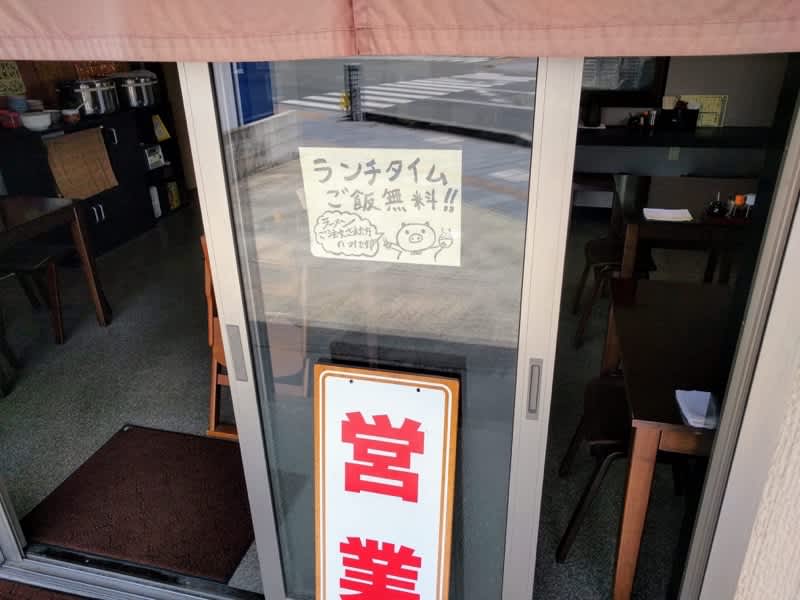 ランチタイム
ご飯無料!!
ラーメン
ご注文された方
のみです
営
業